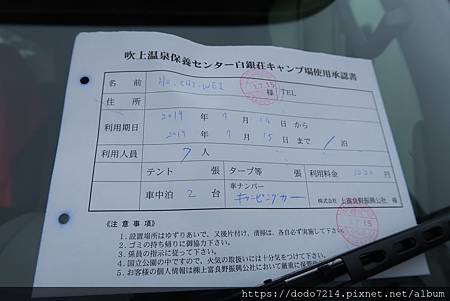 吹上温泉保養センター白銀荘キャンプ場使用承認書
名前 HO, CHI-WEI 様 TEL
住所
利用期日 2019年 7月 14日から
2019年 7月 15日まで 1泊
利用人員 7人
テント 張 タープ等 張 利用料金 1000円
車中泊 2台 車ナンバー キャンピングカー
株式会社 上富良野振興公社
《注意事項》
1. 設置場所はゆずりあいで、又後片付け、清掃は、各自必ず実施して下
2. ゴミの持ち帰りに御協力下さい。
3. 係員の指示に従って下さい。
4. 国立公園の中ですので、火気の取扱いには十分気をつけて下さい。
5. お客様の個人情報は㈱上富良野振興公社において厳重に保管
https://dodo7214.pixnet.net/blog